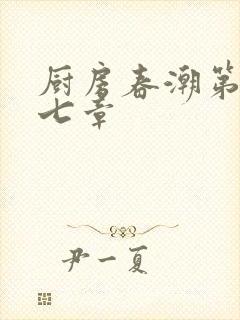 厨房春潮第
七章
尹一夏